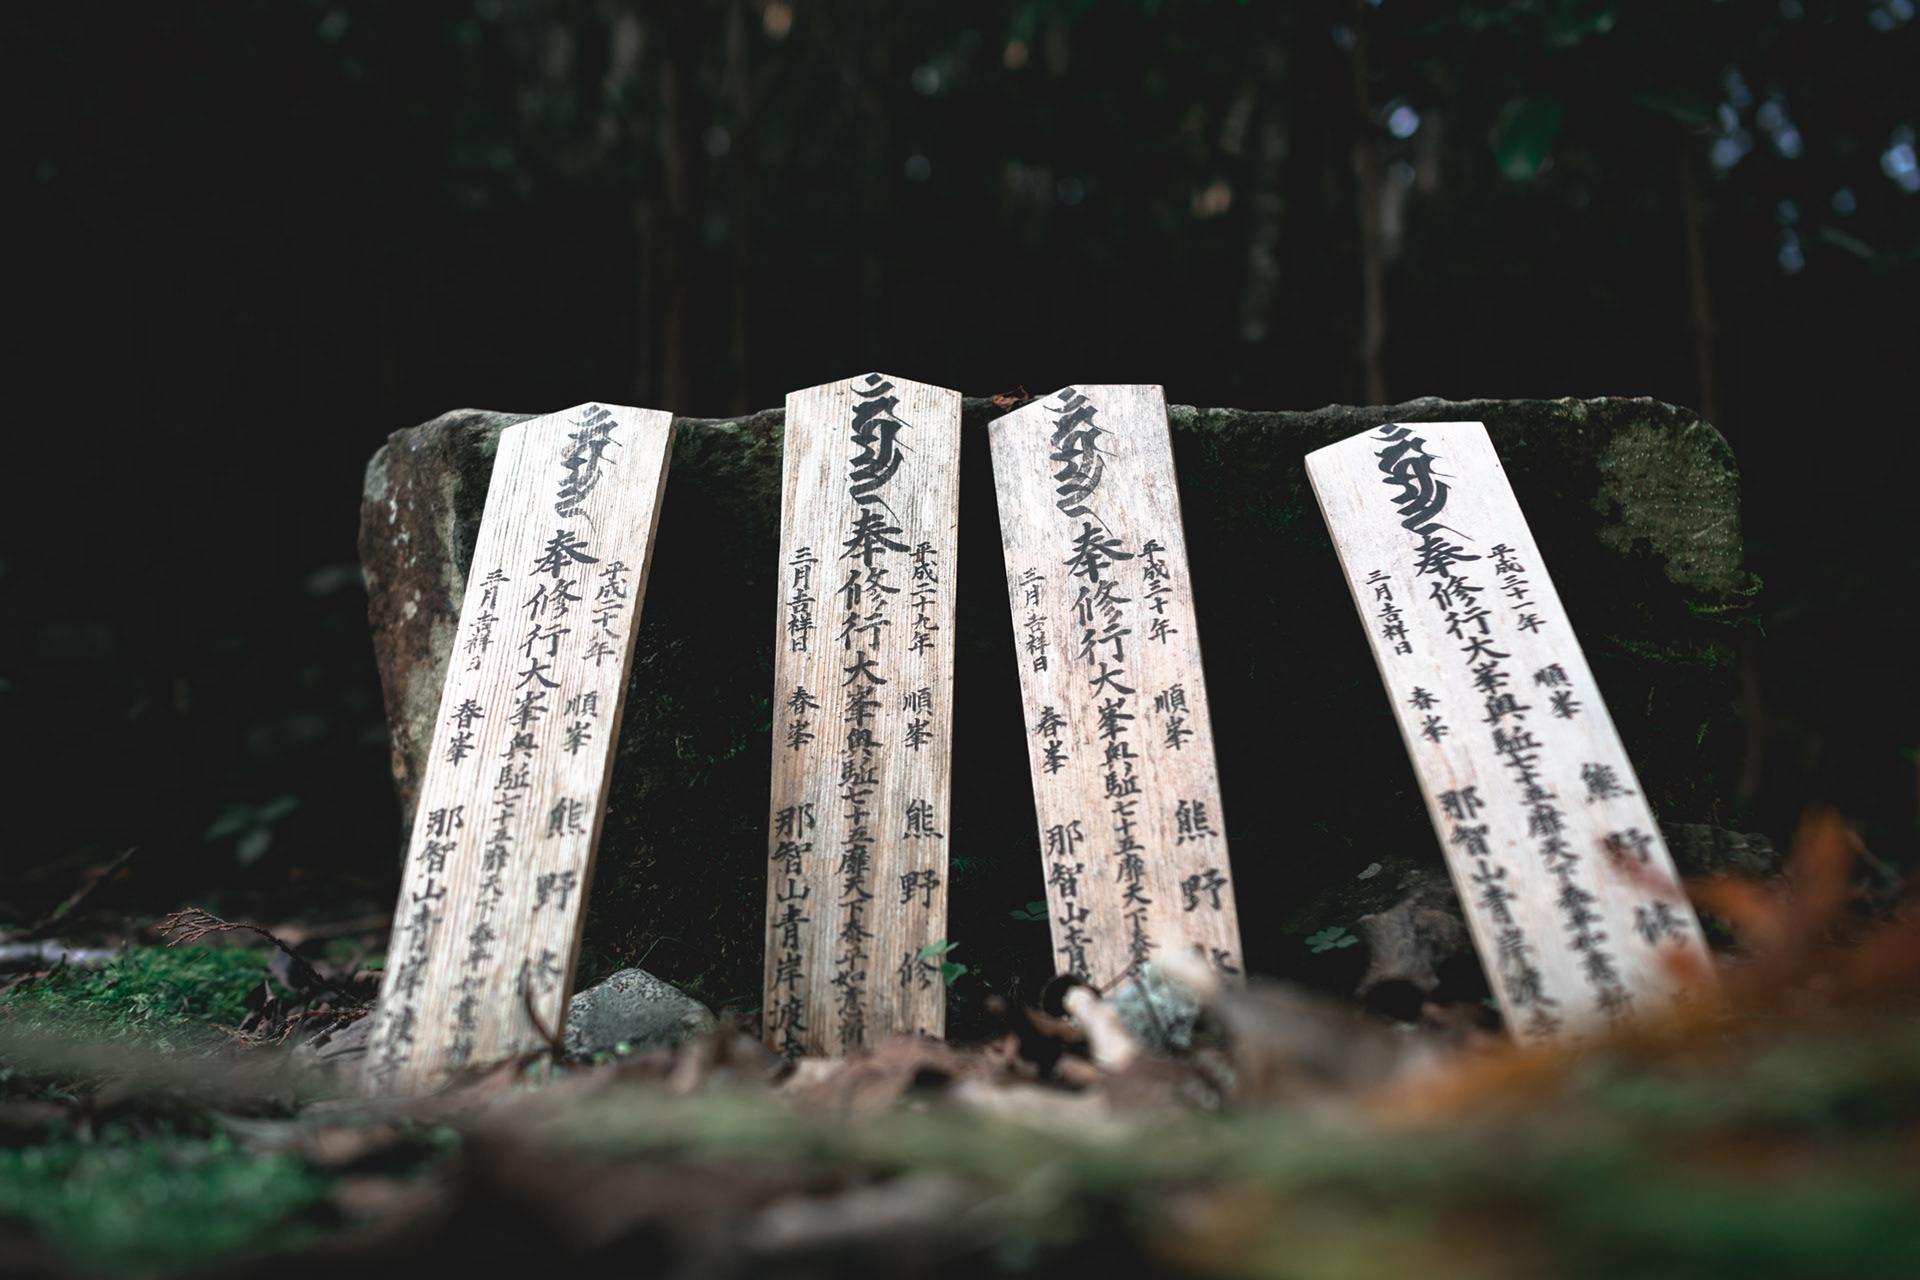 平成二十八年 順峯 熊野修
奉修行大峯奥駈七十五靡天下泰平如意
三月吉祥日 春峯 那智山青岸渡寺
平成二十九年 順峯 熊野修
奉修行大峯奥駈七十五靡天下泰平如意
三月吉祥日 春峯 那智山青岸渡寺
平成三十年 順峯 熊野修
奉修行大峯奥駈七十五靡天下泰
三月吉祥日 春峯 那智山青
平成三十一年 順峯 熊野修
奉修行大峯奥駈七十五靡天下泰平如意
三月吉祥日 春峯 那智山青岸渡寺